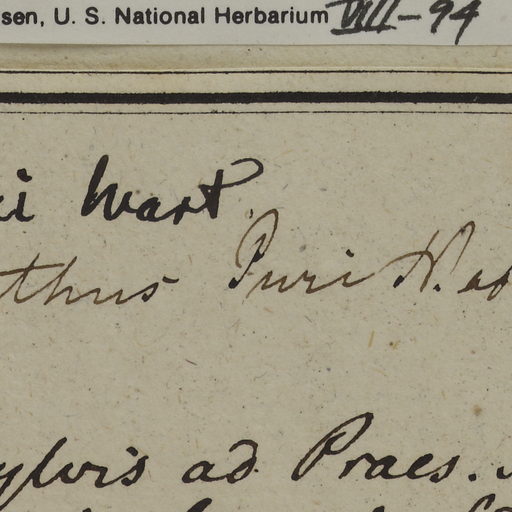 sen, U. S. National Herbarium VIII-94
ii Wart
thus Puri H.
ylvis ad Praes.